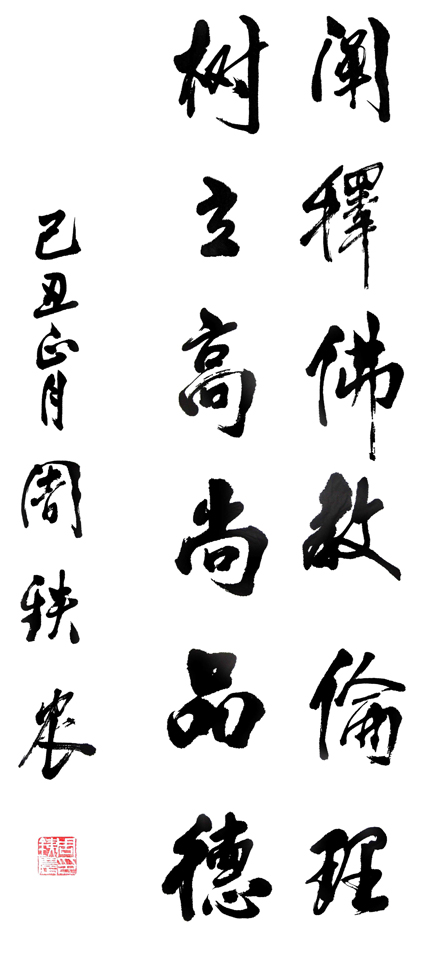 阐釋佛教倫理
树立高尚品德
己丑正月
周铁农